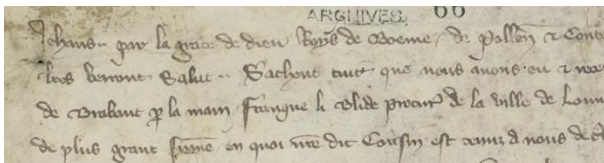 ARCHIVES. 66
Jehans par la grace de dieu Roys de Boeme, de Pollen & Cont
lres verront Salut. Sachent tuit que nous auons eu & rece
de Brabant p la main Franque li Blide procur de la ville de Louu
de plus grant some en quoi nre dit Cousin est tenuz a nous de